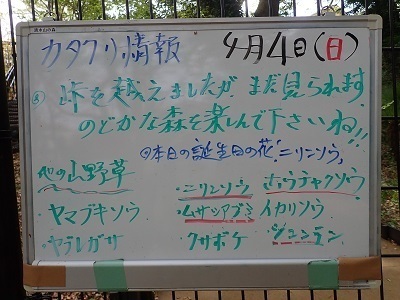 カタクリ情報 4月4日(日)
峠を越えましたが、まだ見られます
のどかな森を楽しんで下さいね!!
◎本日の誕生日の花「ニリンソウ」
他の山野草
・ニリンソウ ホウチャクソウ
・ヤマブキソウ ・ムサシアブミ イカリソウ
・ヤブレガサ ・クサボケ ・シュンラン